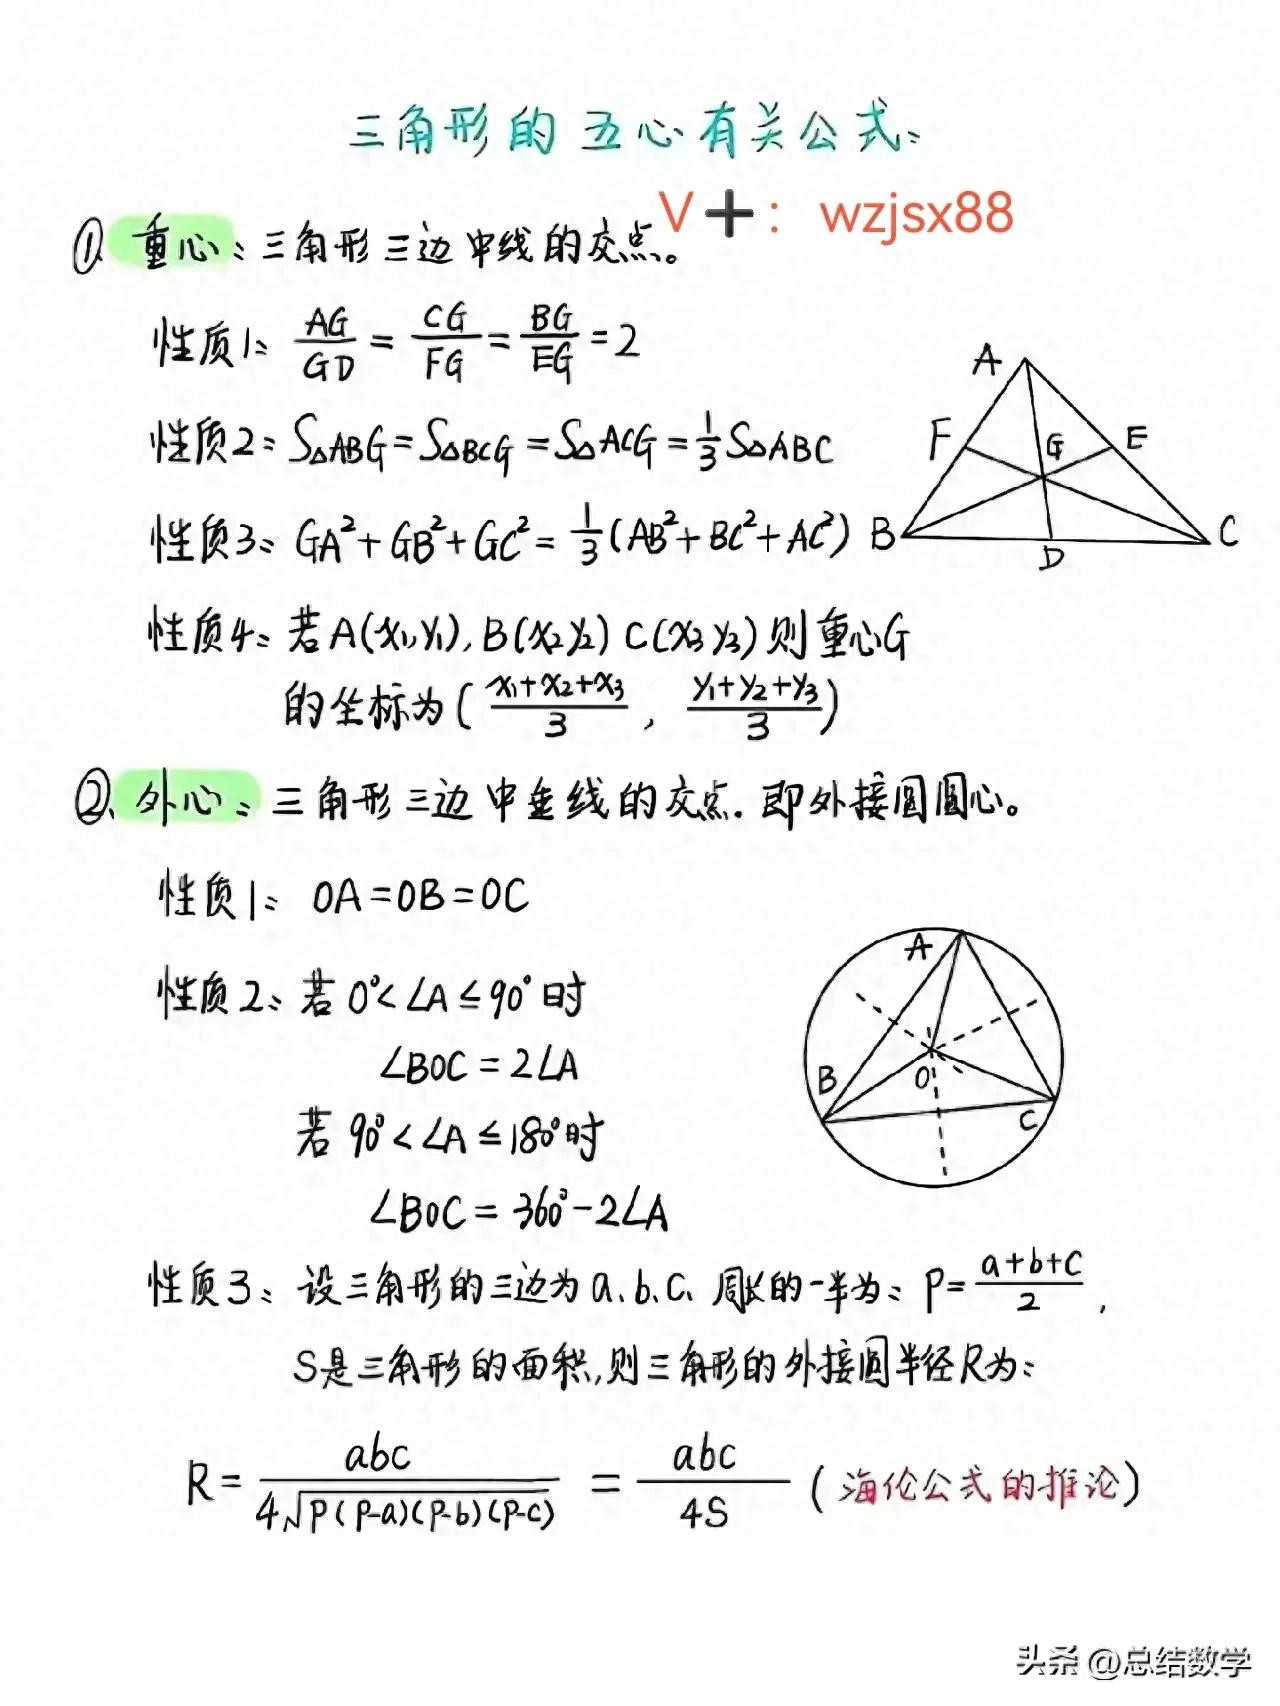 三角形的五心有关公式:
V➕：wzjsx88
①重心:三角形三边中线的交点。
性质1: AG/GD = CG/FG = BG/EG = 2
性质2: S△ABG = S△BCG = S△ACG = 1/3 S△ABC
性质3: GA²+GB²+GC² = 1/3(AB²+BC²+AC²)
A
F
G
E
B
D
C
性质4: 若A(x₁,y₁), B(x₂y₂) C(x₃y₃)则重心G
的坐标为( x₁+x₂+x₃/3 , y₁+y₂+y₃/3 )
②外心:三角形三边中垂线的交点.即外接圆圆心。
性质1: OA=OB=OC
性质2: 若0°<∠A≤90°时
∠BOC=2∠A
若90°<∠A≤180°时
∠BOC=360°-2∠A
A
B
O
C
性质3: 设三角形的三边为a、b、c、周长的一半为: P=a+b+c/2,
S是三角形的面积,则三角形的外接圆半径R为:
R = abc/4√P(P-a)(P-b)(P-c) = abc/4S (海伦公式的推论)
头条 @总结数学